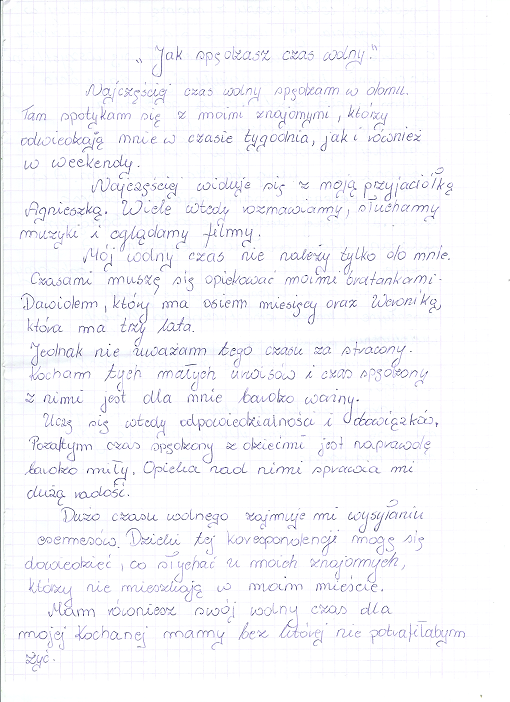 „Jak spędzasz czas wolny."
Najczęściej czas wolny spędzam w domu.
Tam spotykam się z moimi znajomymi, którzy
odwiedzają mnie w czasie tygodnia, jak i również
w weekendy.
Najczęściej widuje się z moją przyjaciółką
Agnieszką. Wiele wtedy rozmawiamy, słuchamy
muzyki i oglądamy filmy.
Mój wolny czas nie należy tylko do mnie.
Czasami muszę się opiekować moimi bratankami.
Dawidem, który ma osiem miesięcy oraz Weroniką,
która ma trzy lata.
Jednak nie uważam tego czasu za stracony.
Kocham tych małych urwisów i czas spędzony
z nimi jest dla mnie bardzo ważny.
Uczę się wtedy odpowiedzialności i obowiązków.
Pozatym czas spędzony z dziećmi jest naprawdę
bardzo miły. Opieka nad nimi sprawia mi
dużą radość.
Dużo czasu wolnego zajmuje mi wysyłaniu
esemesów. Dzięki tej korespondencji mogę się
dowiedzieć, co słychać u moich znajomych,
którzy nie mieszkają w moim mieście.
Mam rówoniesz swój wolny czas dla
mojej kochanej mamy bez której nie potrafiłabym
żyć.